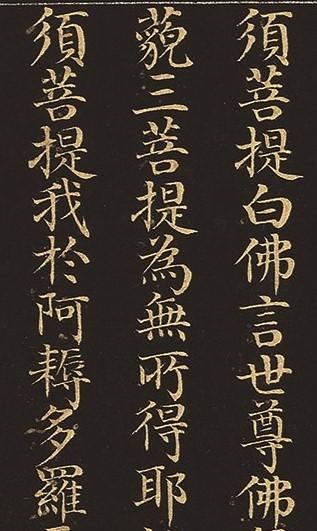 須菩提白佛言世尊佛
藐三菩提為無所得耶
須菩提我於阿耨多羅